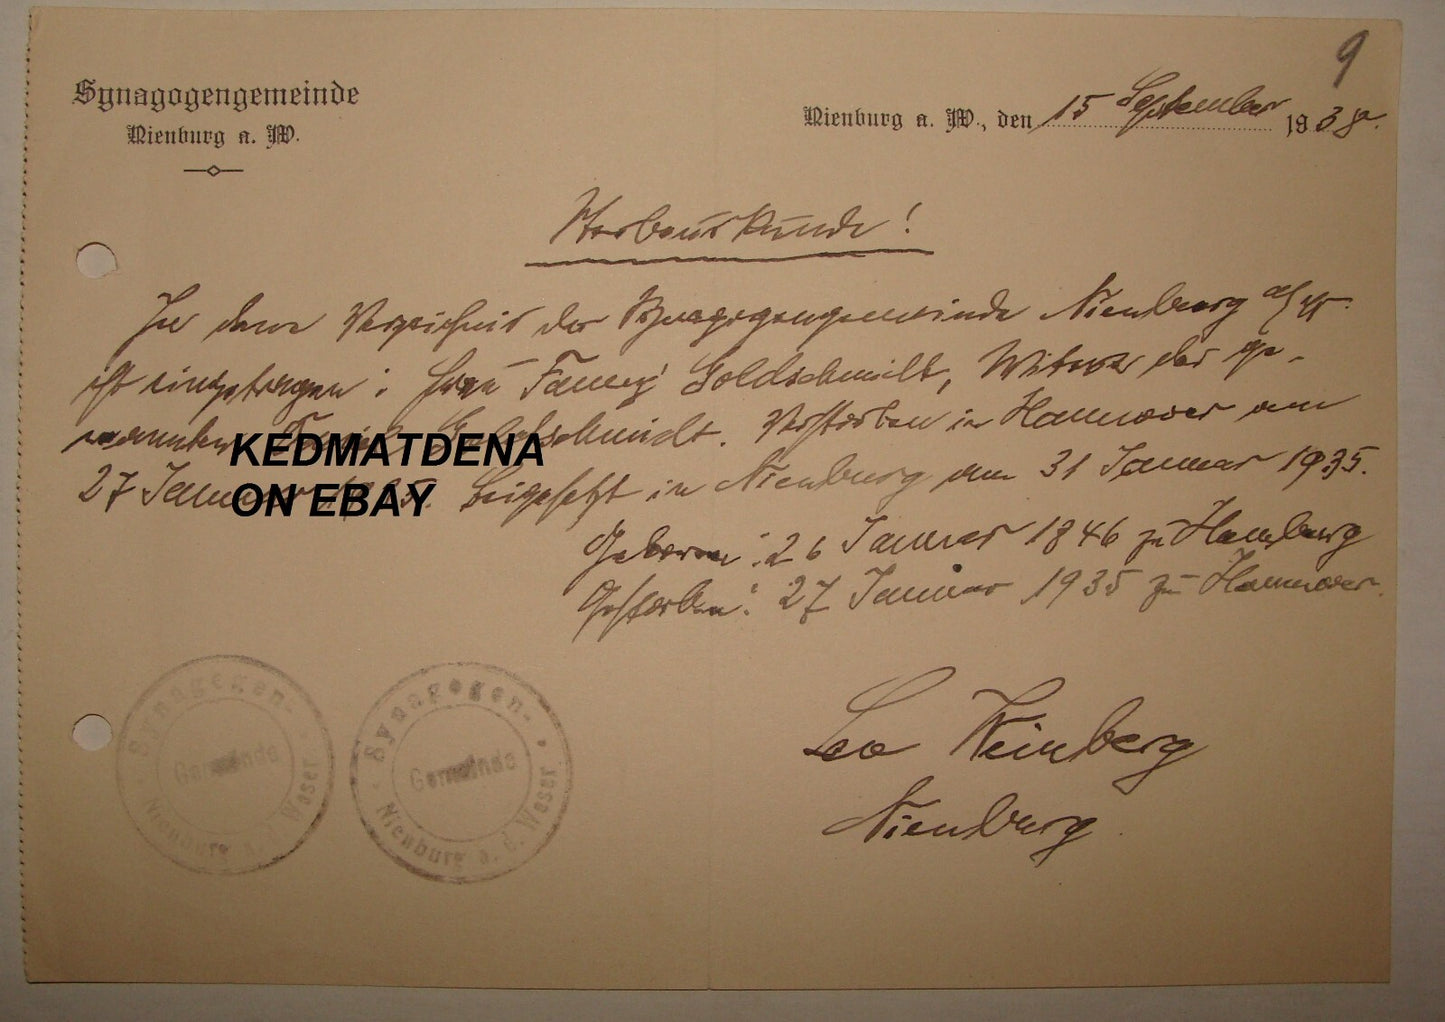 9
Synagogengemeinde
Nienburg a. W.
Nienburg a. W., den 15 September 1938.
Sterbeurkunde!
In dem Verzeichnis der Synagogengemeinde Nienburg a/W.
ist eingetragen: Frau Fanny Goldschmidt, Witwe des ge-
nannten Goldschmidt. Verstorben in Hannover am
27 Januar 1935. Beigesetzt in Nienburg am 31 Januar 1935.
KEDMATDENA
ON EBAY
Geboren: 26 Januar 1846 zu Hamburg
Gestorben: 27 Januar 1935 zu Hannover.
Leo Weinberg
Nienburg
Synagogen-
Gemeinde
Nienburg a. d. Weser
Synagogen-
Gemeinde
Nienburg a. d. Weser